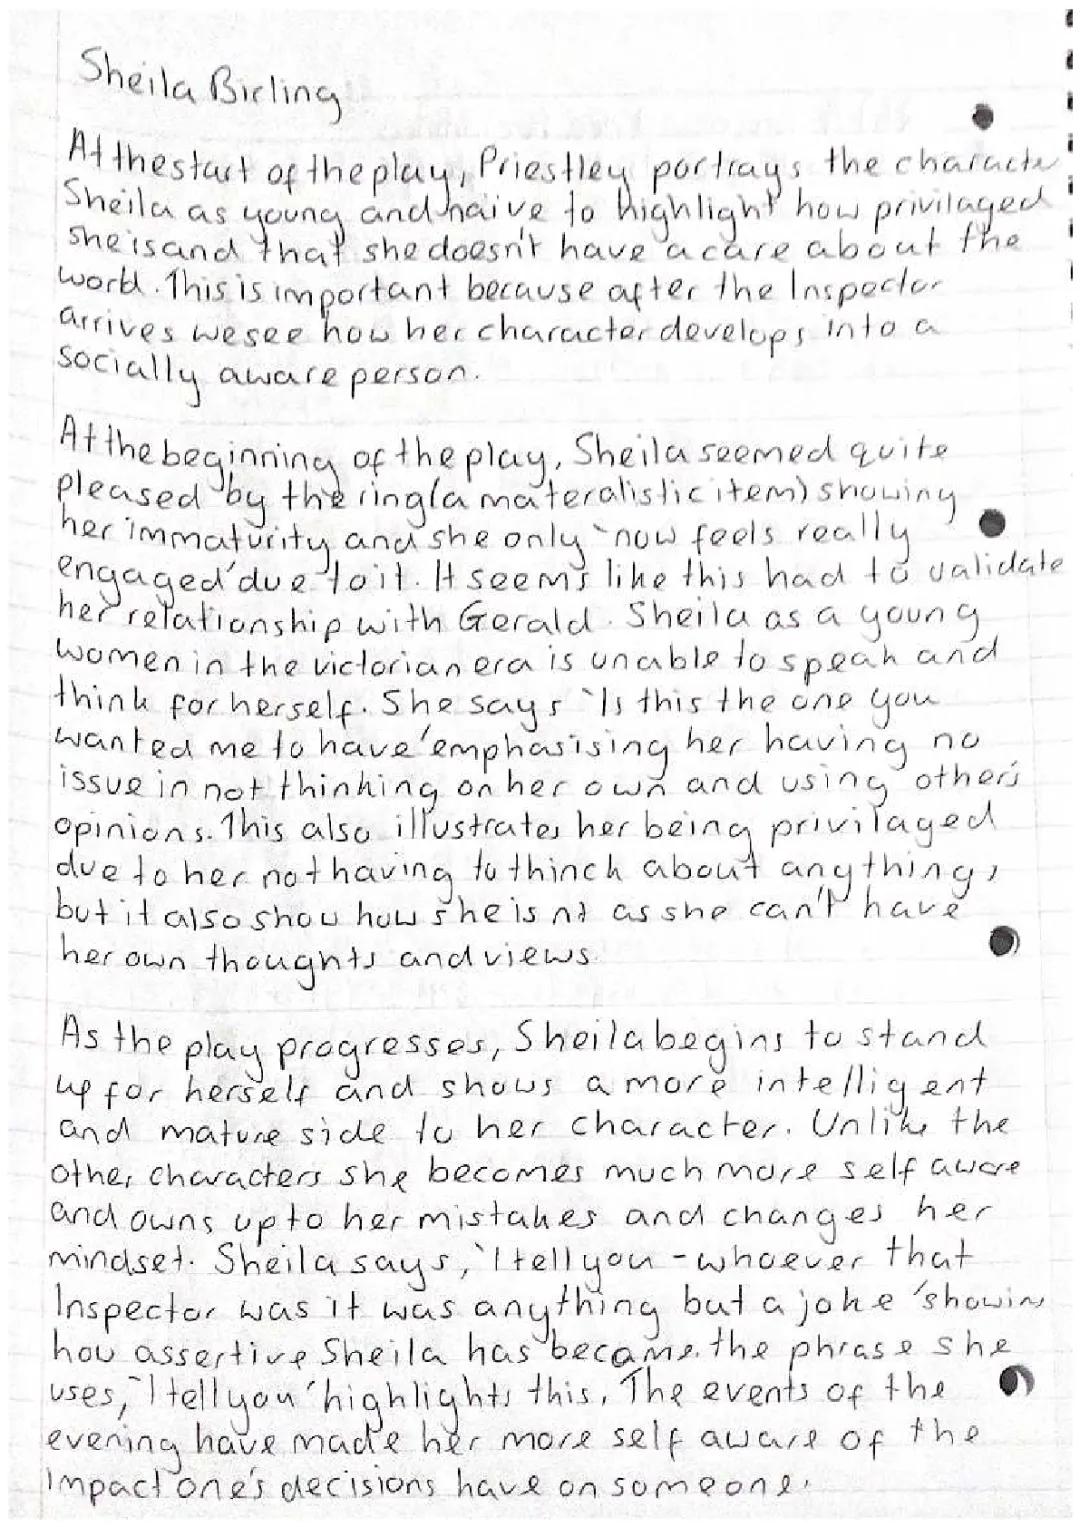 Sheila Birling
At the start of the play, Priestley portrays the characte
Sheila as young and naive to highlight how privilaged
she is and that she doesn't have a care about the
world. This is important because after the Inspector
arrives we see how her character develops into a
socially aware person.
At the beginning of the play, Sheila seemed quite
pleased by the ring (a materalistic item) showing
her immaturity and she only 'now feels really
engaged' due to it. It seems like this had to validate
her relationship with Gerald. Sheila as a young
women in the victorian era is unable to speak and
think for herself. She says 'Is this the one you
wanted me to have' emphasising her having no
issue in not thinking on her own and using other's
opinions. This also illustrates her being privilaged
due to her not having to thinck about anything,
but it also show how she is nt as she can't have
her own thoughts and views.
As the play progresses, Sheila begins to stand
up for herself and shows a more intelligent
and mature side to her character. Unlike the
other characters she becomes much more self aware
and owns up to her mistakes and changes her
mindset. Sheila says, 'I tell you - whoever that
Inspector was it was anything but a joke' showin
how assertive Sheila has became. the phrase she
uses, 'I tell you' highlights this. The events of the
evening have made her more self aware of the
impact one's decisions have on someone.